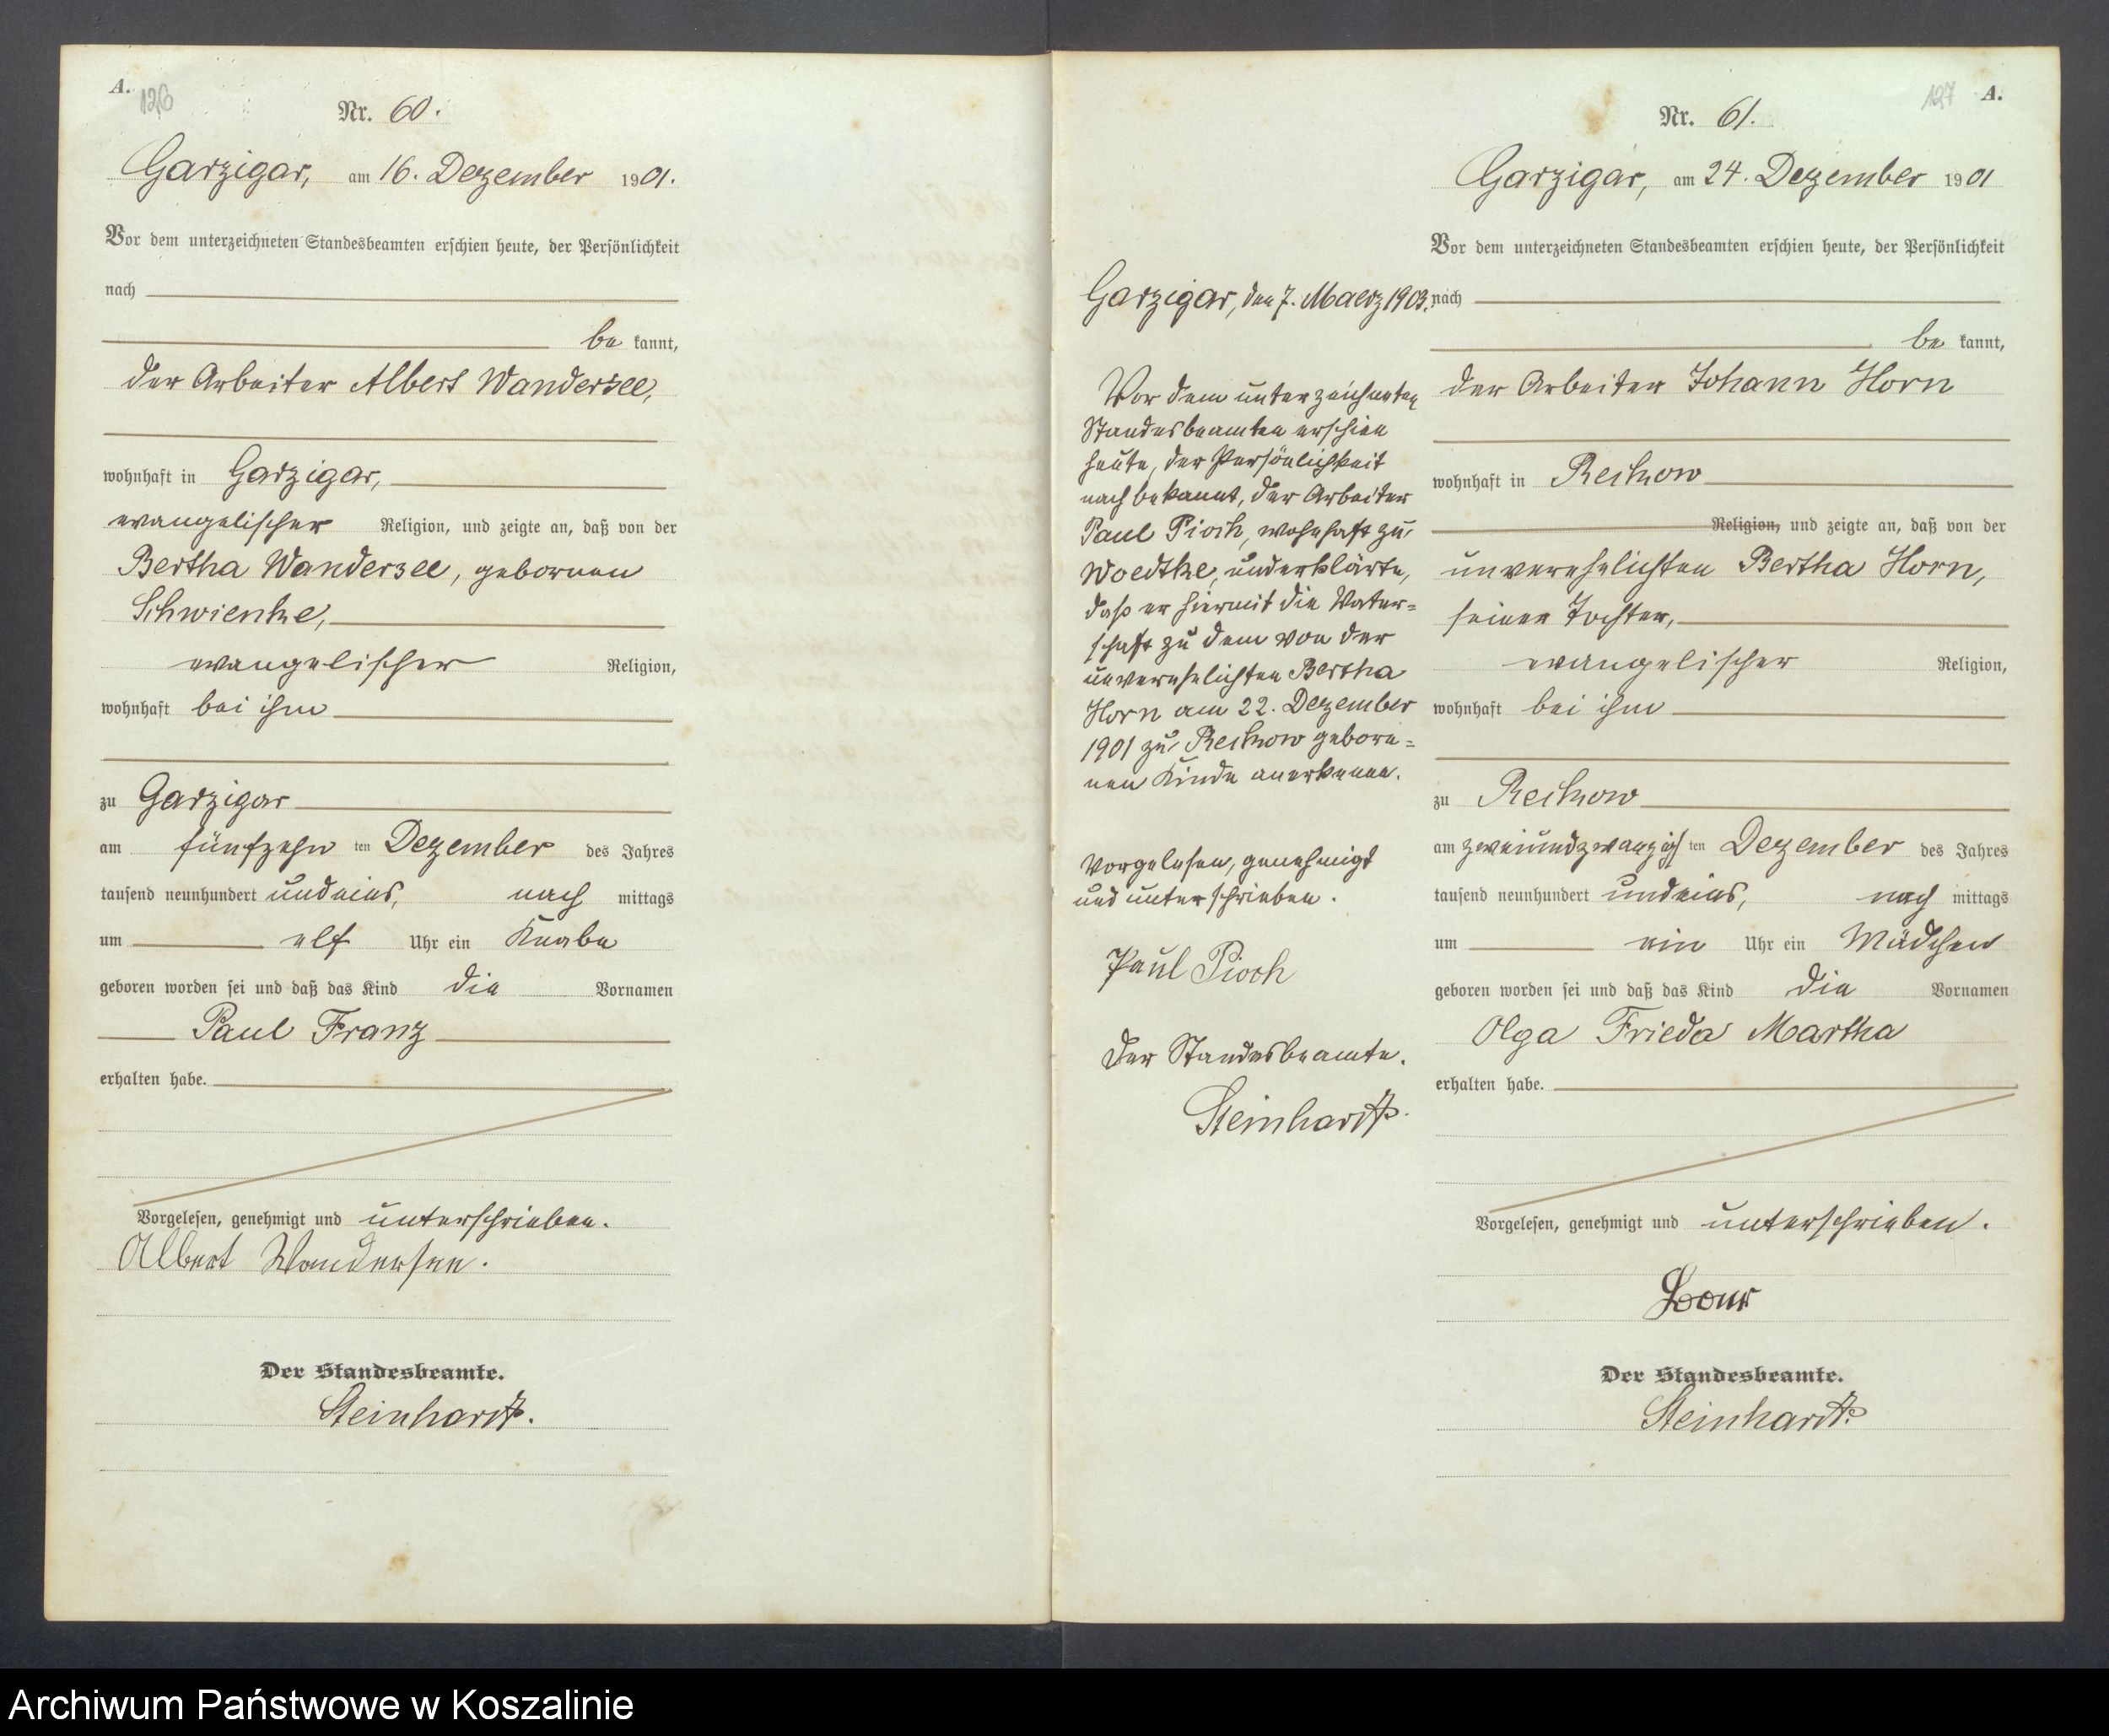 A.
126
Nr. 60.
Garzigar, am 16. Dezember 1901.
Vor dem unterzeichneten Standesbeamten erschien heute, der Persönlichkeit
nach
be kannt,
der Arbeiter Albert Wandersee,
wohnhaft in Garzigar,
evangelischer Religion, und zeigte an, daß von der
Bertha Wandersee, geborenen
Schwienke,
evangelischer Religion,
wohnhaft bei ihm
zu Garzigar
am fünfzehn ten Dezember des Jahres
tausend neunhundert undeins, nach mittags
um elf Uhr ein Knabe
geboren worden sei und daß das Kind die Vornamen
Paul Franz
erhalten habe.
Vorgelesen, genehmigt und unterschrieben.
Albert Wandersee.
Der Standesbeamte.
Steinhardt.
127 A.
Nr. 61.
Garzigar, am 24. Dezember 1901
Vor dem unterzeichneten Standesbeamten erschien heute, der Persönlichkeit
nach
be kannt,
der Arbeiter Johann Horn
wohnhaft in Reckow
Religion, und zeigte an, daß von der
unverehelichten Bertha Horn,
seiner Tochter,
evangelischer Religion,
wohnhaft bei ihm
zu Reckow
am zweiundzwanzigs ten Dezember des Jahres
tausend neunhundert undeins, nach mittags
um ein Uhr ein Mädchen
geboren worden sei und daß das Kind die Vornamen
Olga Frieda Martha
erhalten habe.
Vorgelesen, genehmigt und unterschrieben.
Horn
Der Standesbeamte.
Steinhardt.
Garzigar, den 7. Maerz 1903.
Vor dem unterzeichneten
Standesbeamten erschien
heute, der Persönlichkeit
nach bekannt, der Arbeiter
Paul Pioch, wohnhaft zu
Woedtke, und erklärte,
daß er hiermit die Vater=
schaft zu dem von der
unverehelichten Bertha
Horn am 22. Dezember
1901 zu Reckow gebore=
nen Kinde anerkenne.
Vorgelesen, genehmigt
und unterschrieben.
Paul Pioch
Der Standesbeamte.
Steinhardt.
Archiwum Państwowe w Koszalinie